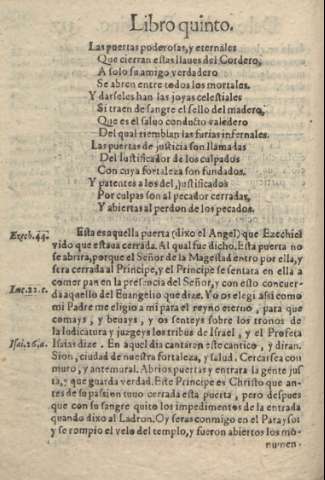 Libro quinto.
Las puertas poderosas, y eternales
Que cierran estas llaues del Cordero,
A solo su amigo verdadero
Se abren entre todos los mortales.
Y darseles han las joyas celestiales
Si traen de sangre el sello del madero,
Que es el saluo conducto valedero
Del qual tiemblan las furias infernales.
Las puertas de justicia son llamadas
Del Iustificador de los culpados
Con cuya fortaleza son fundadas.
Y patentes a los del, justificados
Por culpas son al pecador cerradas,
Y abiertas al perdon de los pecados.
Ezech. 44.
Esta es aquella puerta (dixo el Angel) que Ezechiel
vido que estaua cerrada. Al qual fue dicho. Esta puerta no
se abrira, porque el Señor de la Magestad entro por ella, y
sera cerrada al Principe, y el Principe se sentara en ella a
comer pan en la presencia del Señor, y con esto concuer-
Luc. 22. c.
da aquello del Euangelio que dize. Yo os elegi assi como
mi Padre me eligio a mi para el reyno eterno, para que
comays, y beuays, y os senteys sobre los tronos de
la Iudicatura y juzgeys los tribus de Israel, y el Profeta
Isai. 26. a.
Isaias dize. En aquel dia cantaron este cantico, y diran.
Sion, ciudad de nuestra fortaleza, y salud. Cercarse con
muro, y antemural. Abrios puertas y entrara la gente jus
ta, y que guarda verdad. Este Principe es Christo que an-
tes de su passion tuuo cerrada esta puerta, pero despues
que con su sangre quito los impedimentos de la entrada
quando dixo al Ladron. Oy seras conmigo en el Parayso
y se rompio el velo del templo, y fueron abiertos los mo-
numen-